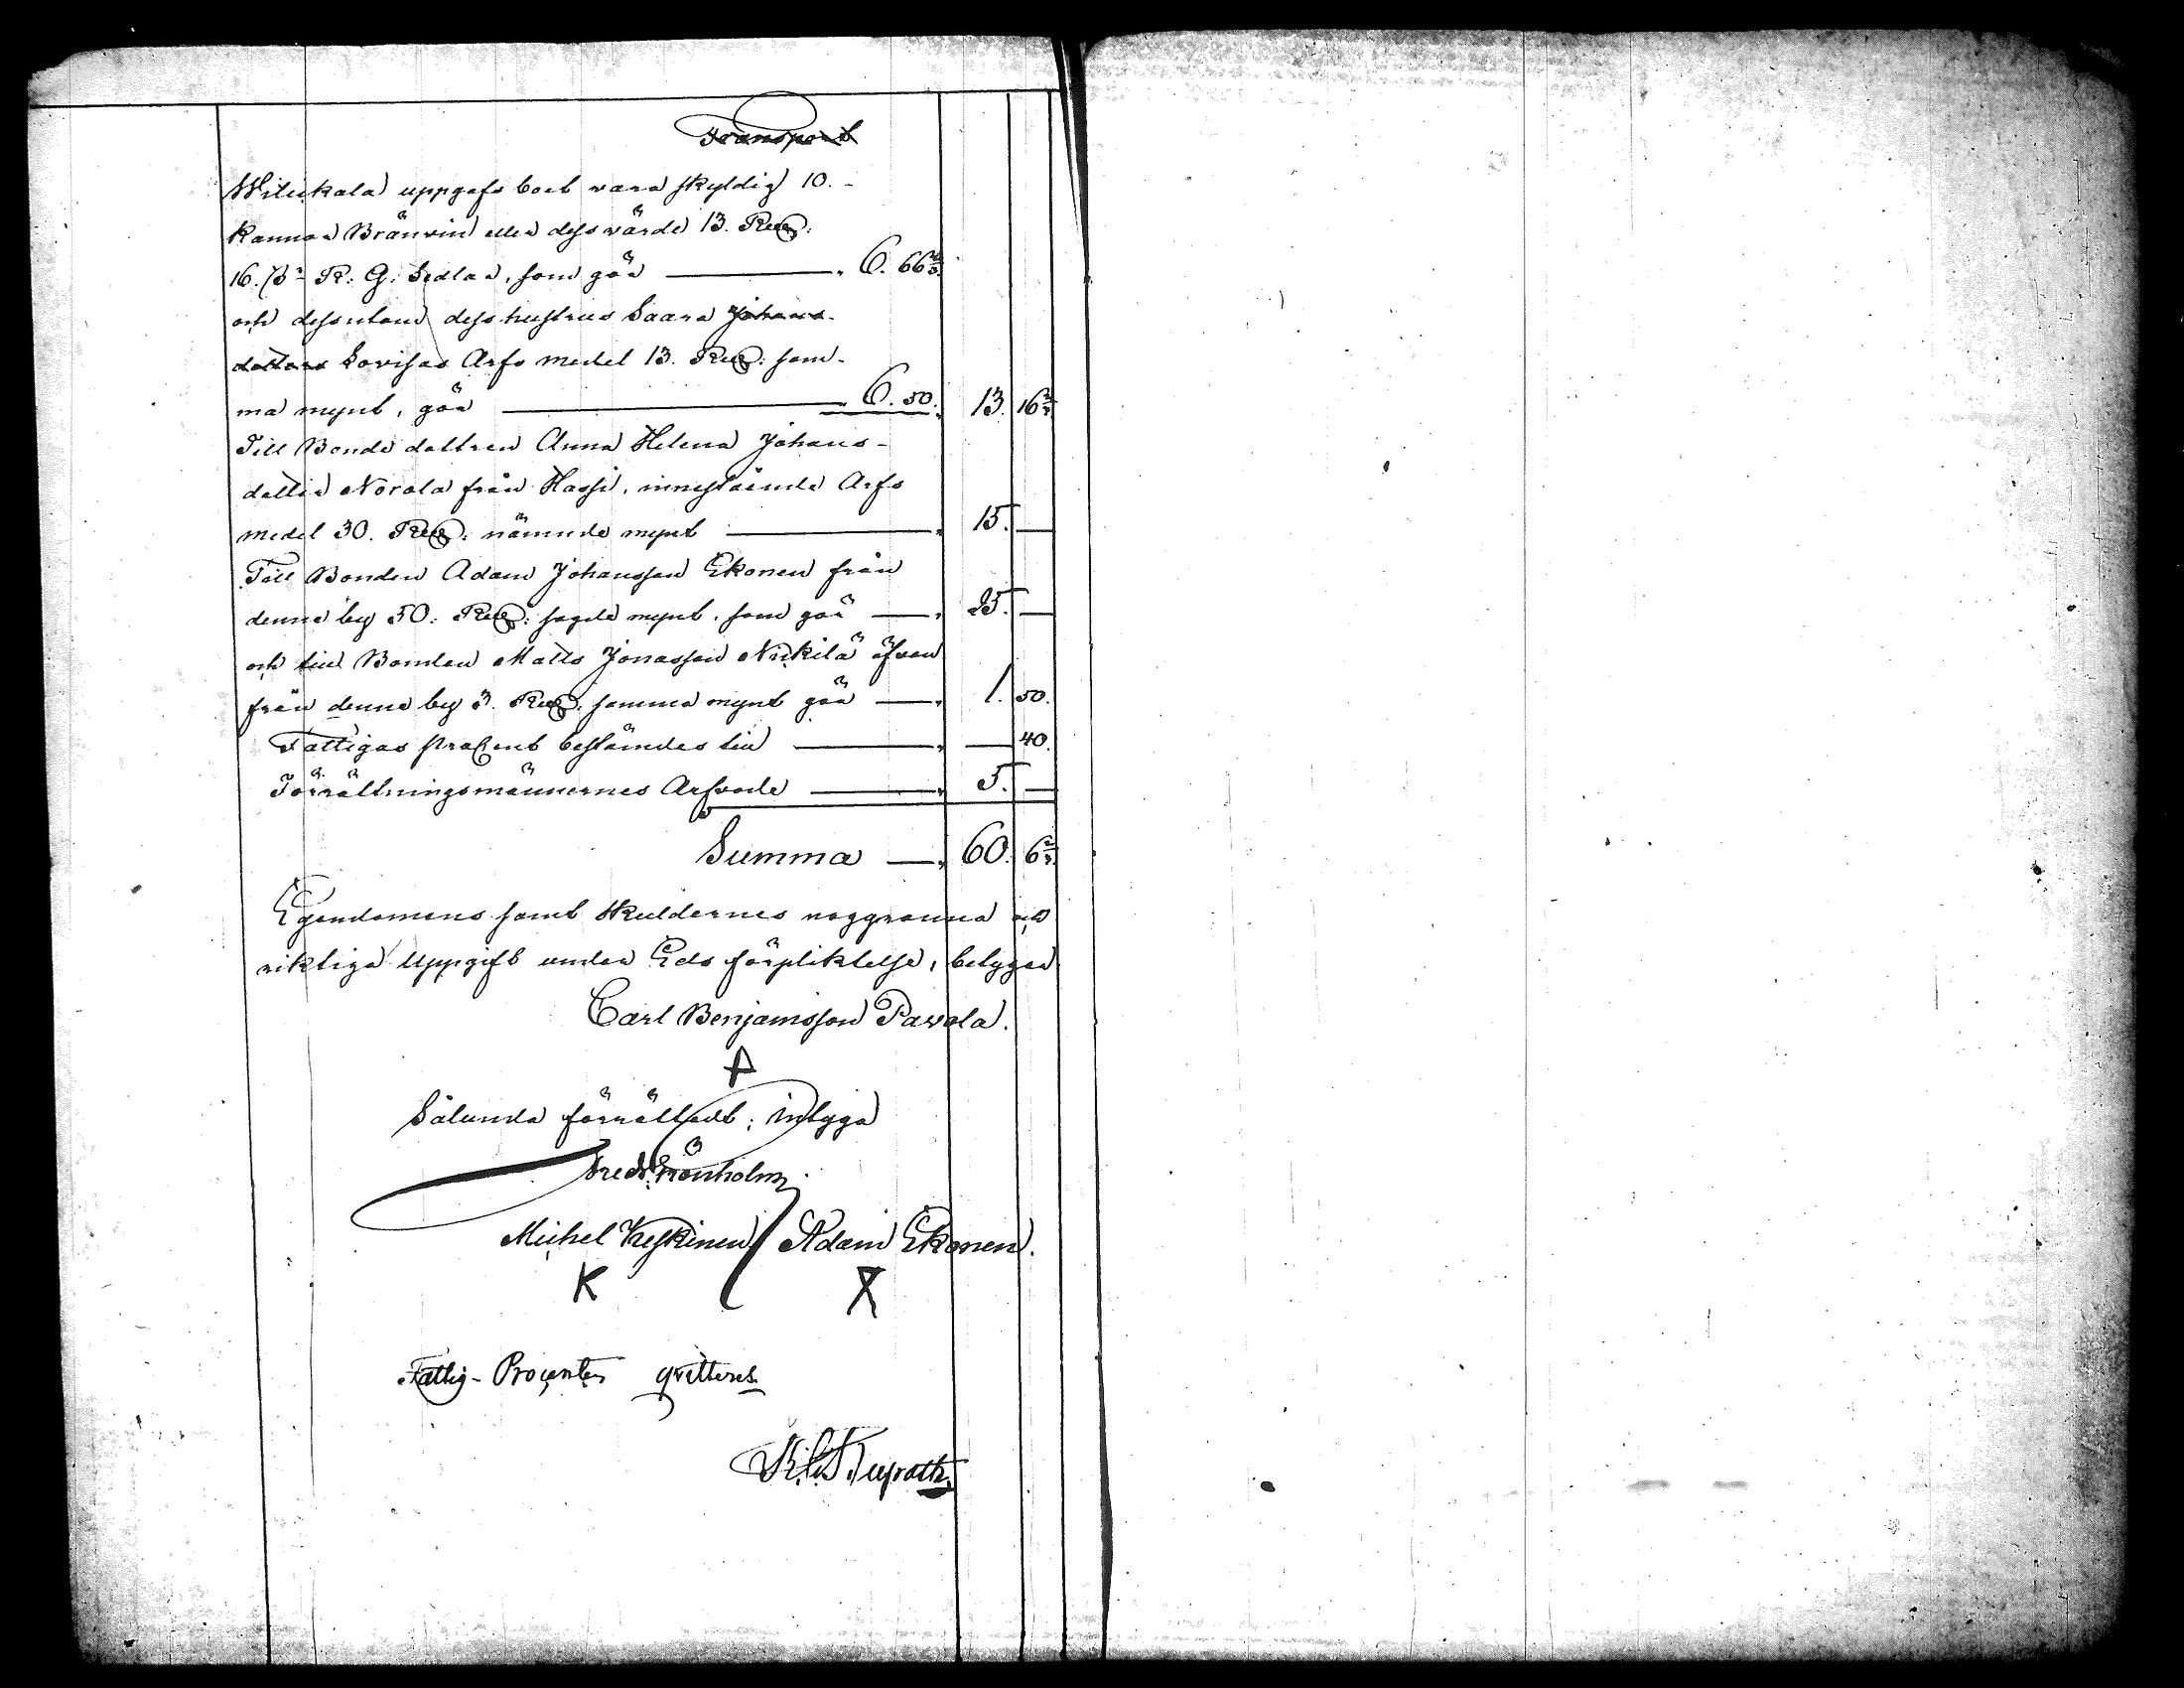 Transport
Wilukala uppgafs boet vara skyldig 10.-
kannor Bränvin eller dess värde 13. Rub:
16. /3- R: G: Sedlar, som gör — 6. 66 2/3.
och dessutom dess hustrus Saara Johans-
dotters Lovisas Arfs medel 13. Rub: sam-
ma mynt, gör — 6. 50. 13. 16 2/3
Till Bonde dottren Anna Helena Johans-
dotter Norola från Hassi, innestående Arfs
medel 30. Rub: nämnde mynt — 15. —
Till Bonden Adam Johansson Ekonen från
denna by 50. Rub: sagde mynt, som gör — 25. —
och till Bonden Matts Jonasson Nikkilä äfven
från denna by 3. Rub: samma mynt gör — 1. 50.
Fattigas procent bestämdes till — — 40.
Förrättningsmännernes Arfvode — 5. —
Summa — 60. 6 2/3.
Egendomens samt Skuldernes noggranna och
riktiga Uppgift under Eds förpliktelse, betygar
Carl Benjamsson Pavola.
Sålunda förrättadt; intyga
Fredr: Grönholm.
Michel Keskinen Adam Ekonen.
K X
Fattig-Procenten qvitteras